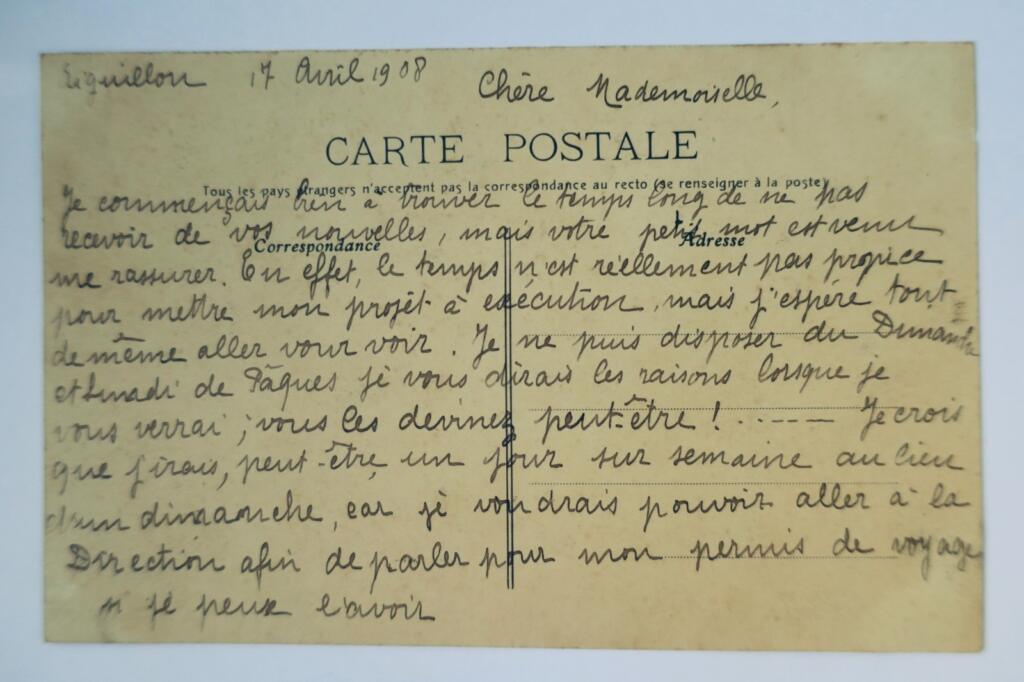 Aiguillon 17 Avril 1908
Chère Mademoiselle,
CARTE POSTALE
Tous les pays étrangers n'acceptent pas la correspondance au recto (se renseigner à la poste)
Je commençais bien à trouver le temps long de ne pas
recevoir de vos nouvelles, mais votre petit mot est venu
Correspondance
Adresse
me rassurer. En effet, le temps n'est réellement pas propice
pour mettre mon projet à exécution, mais j'espère tout
de même aller vour voir. Je ne puis disposer du Dimanche
et Lundi de Pâques je vous dirais les raisons lorsque je
vous verrai ; vous les devinez peut-être ! ..---- Je crois
que j'irais, peut-être un jour sur semaine au lieu
d'un dimanche, car je voudrais pouvoir aller à la
Direction afin de parler pour mon permis de voyage
si je peux l'avoir